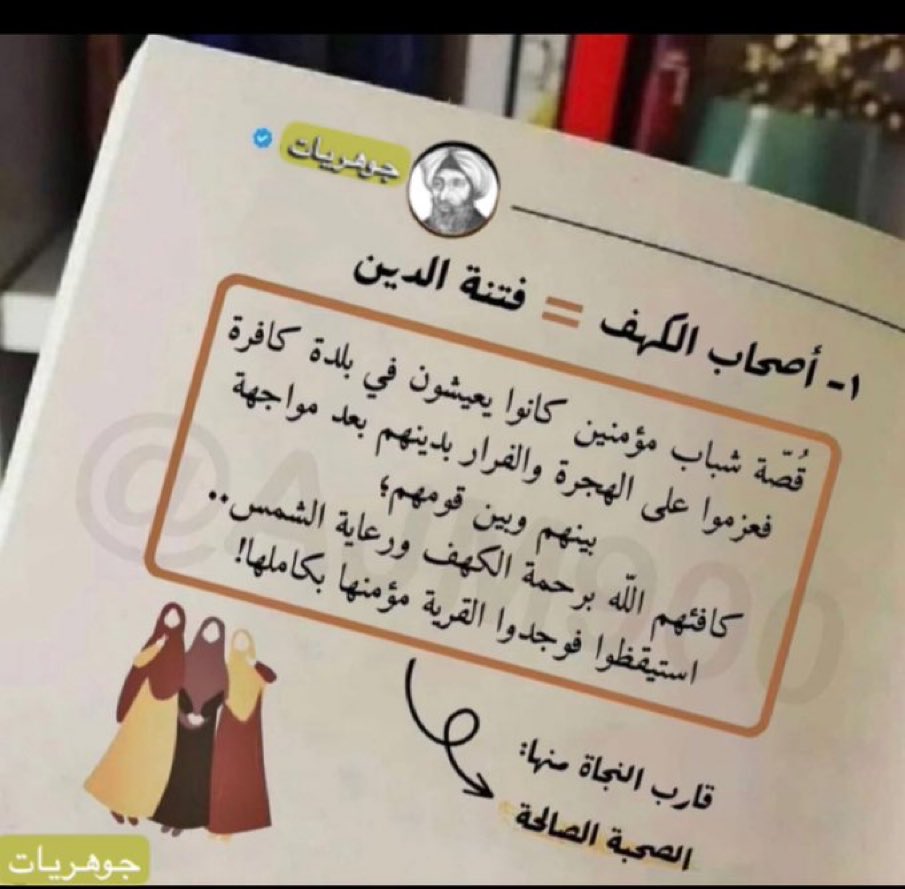 جوهريات
١- أصحاب الكهف = فتنة الدين
قُصّة شباب مؤمنين كانوا يعيشون في بلدة كافرة
فعزموا على الهجرة والفرار بدينهم بعد مواجهة
بينهم وبين قومهم؛
كافئهم الله برحمة الكهف ورعاية الشمس..
استيقظوا فوجدوا القرية مؤمنها بكاملها!
قارب النجاة منها:
الصحبة الصالحة
جوهريات